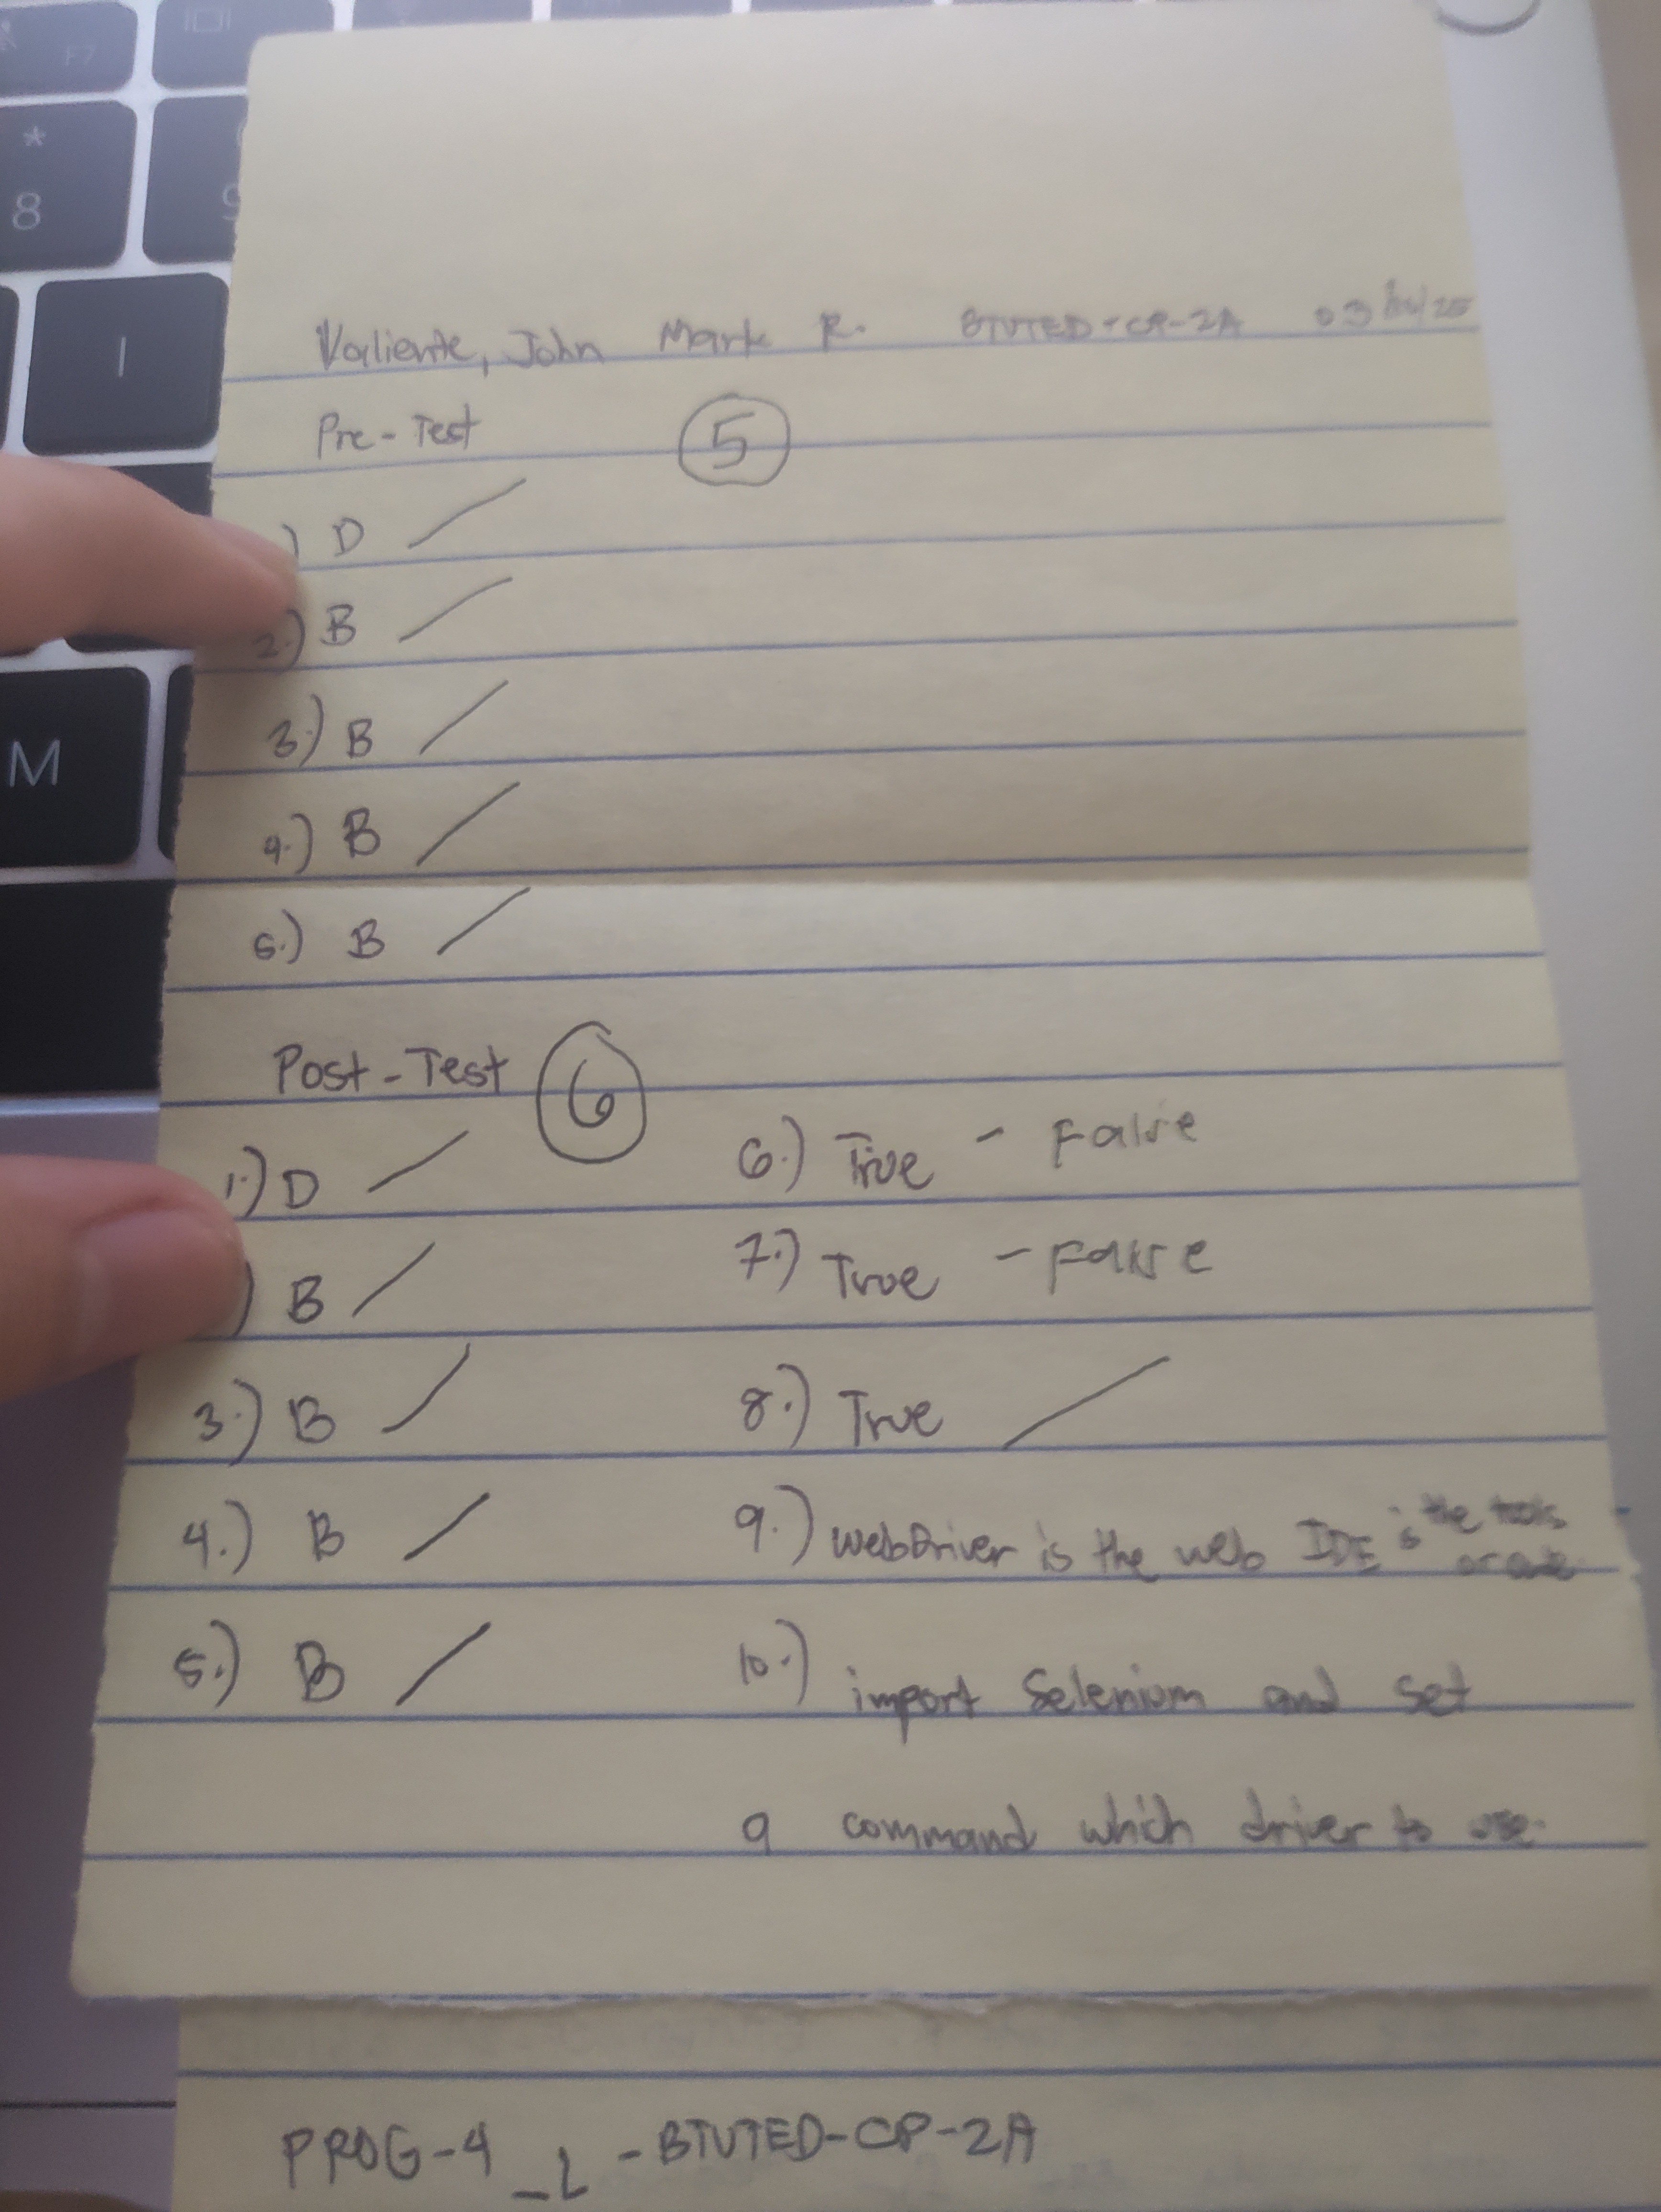 Valiente, John Mark R. BTVTED-CP-2A
Pre-Test 5
) D /
2.) B /
3.) B /
4.) B /
5.) B /
Post-Test 6
1.) D /
) B /
3.) B /
4.) B /
5.) B /
6.) True - False
7.) True - False
8.) True /
9.) WebDriver is the web IDE is the tools
10.) import Selenium and set
a command which driver to use.
PROG-4_L-BTVTED-CP-2A
F7
*
8
I
M